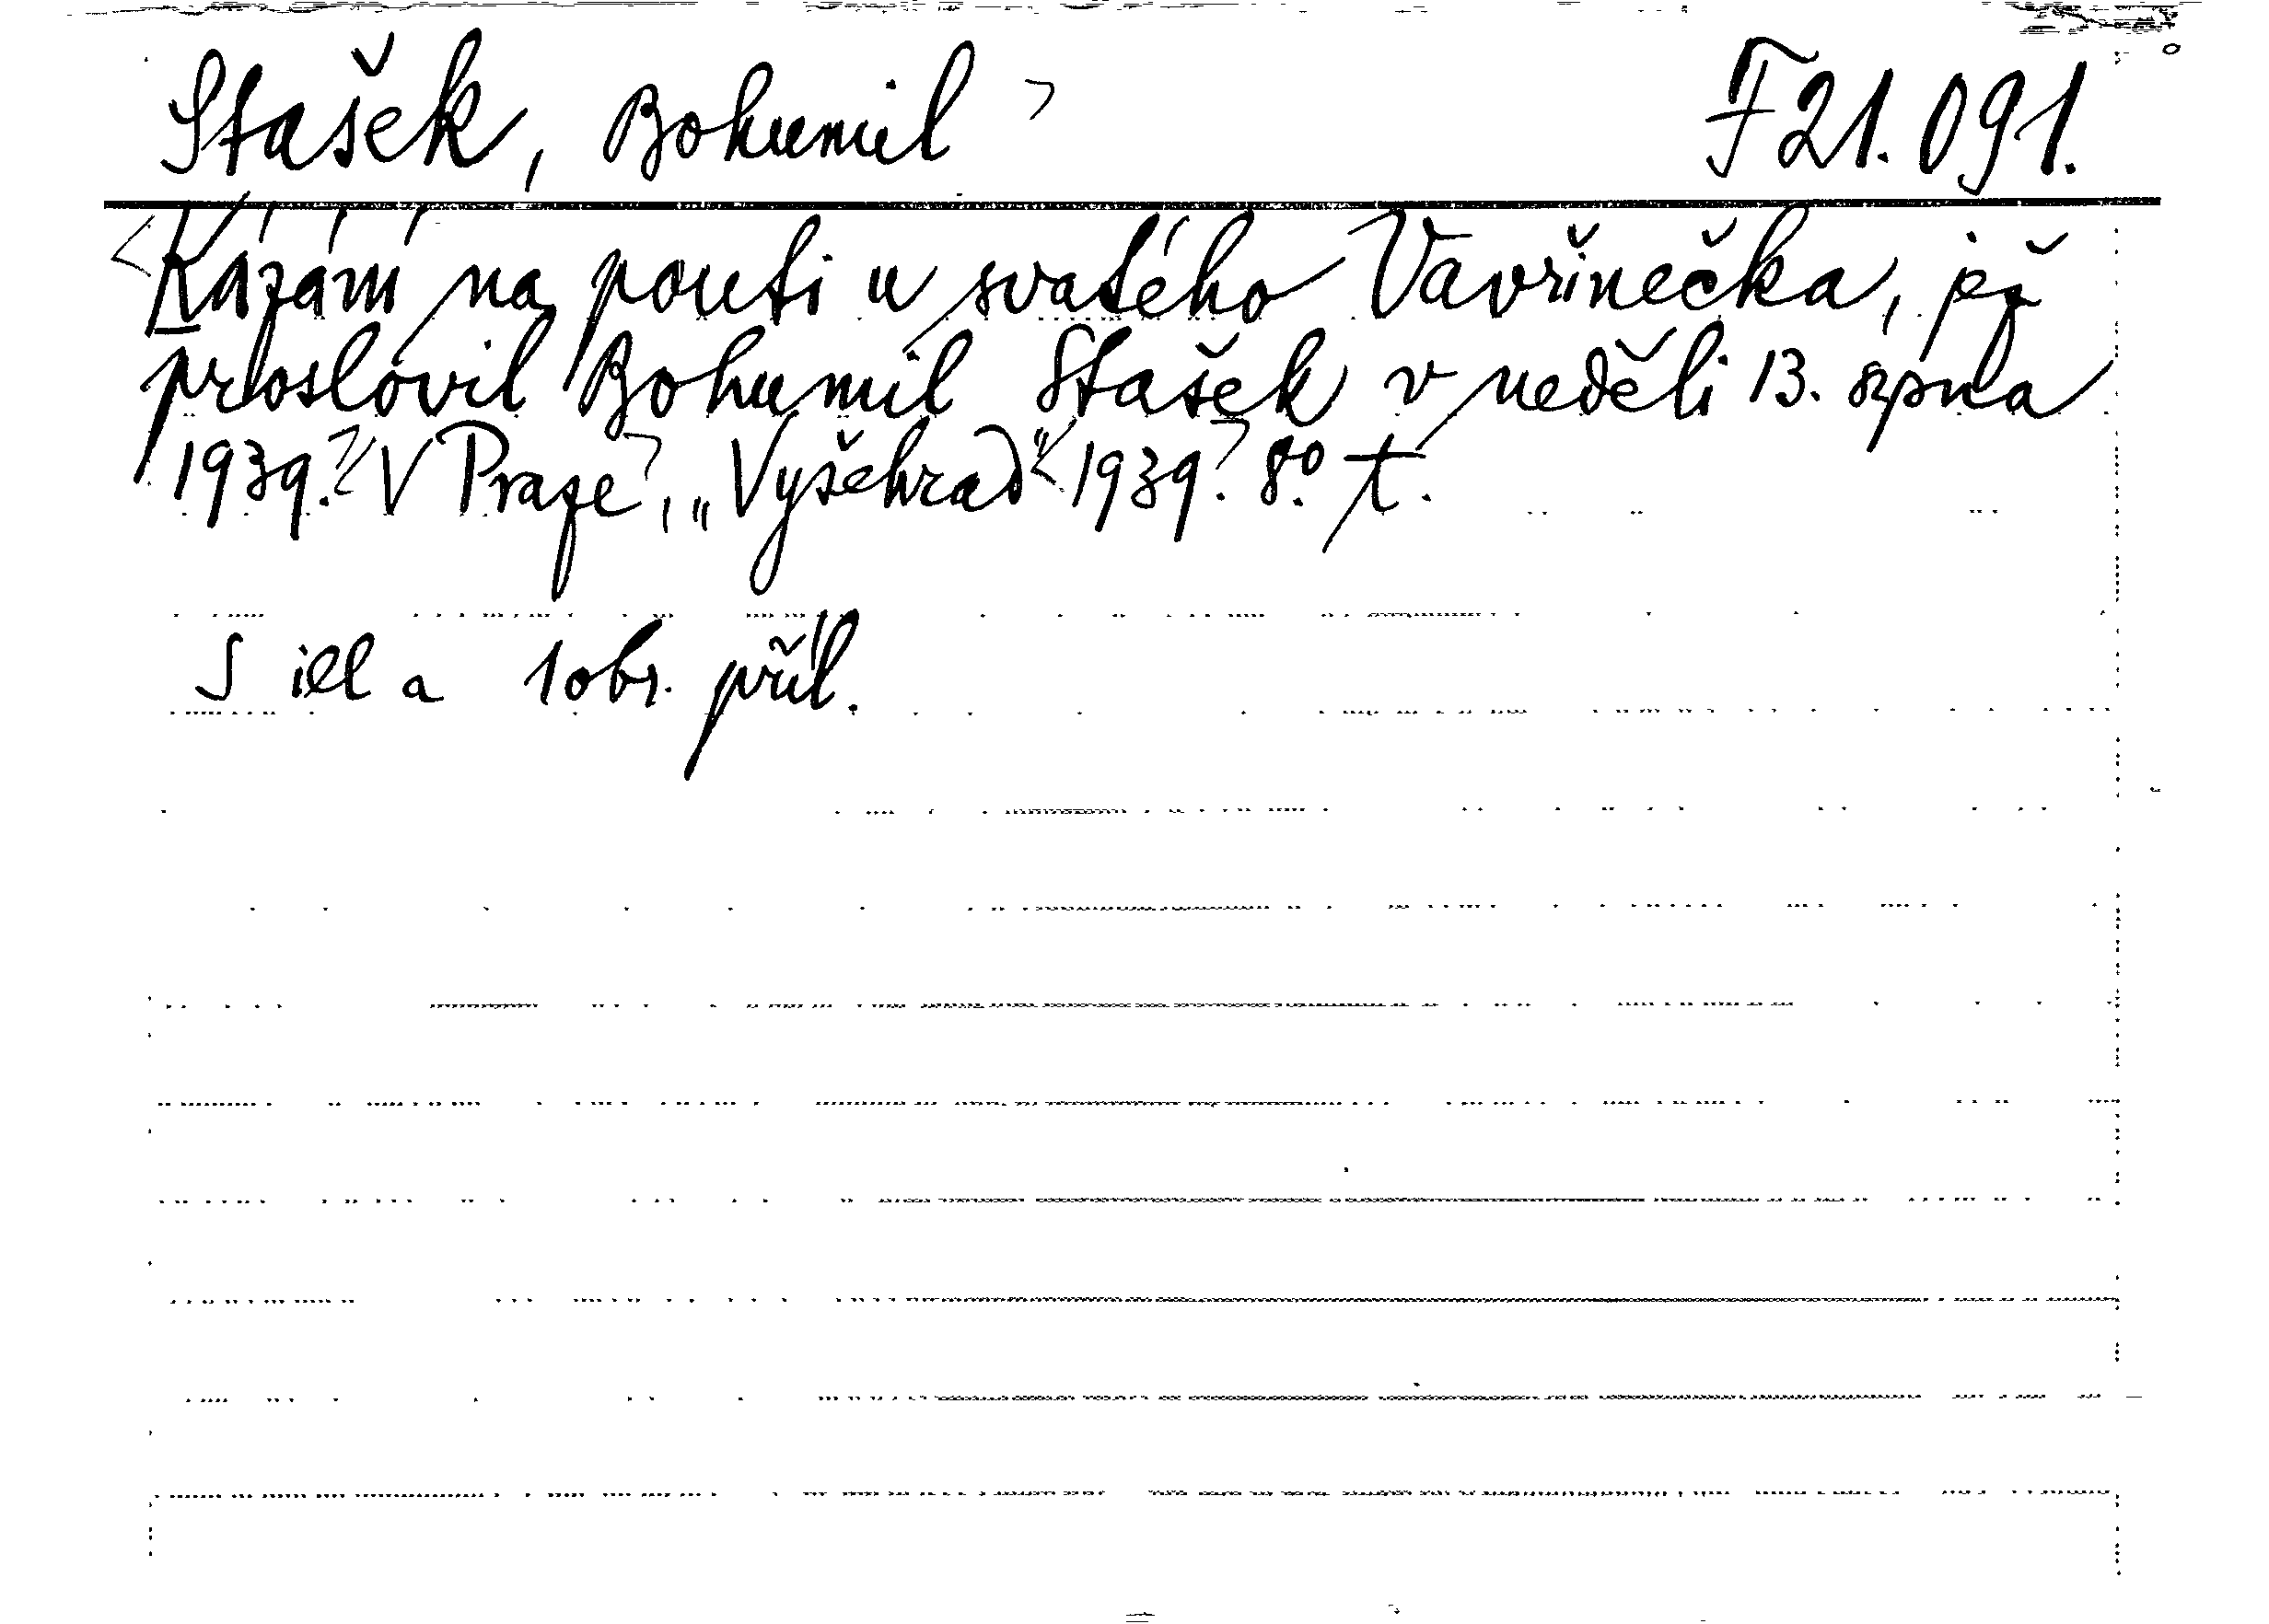 Stašek, Bohumil F 21.091.
Kázání na pouti u svatého Vavřinečka, jež
proslovil Bohumil Stašek v neděli 13. srpna
1939. V Praze, „Vyšehrad“ 1939. 8.° t.
S ill a 1 obr. příl.